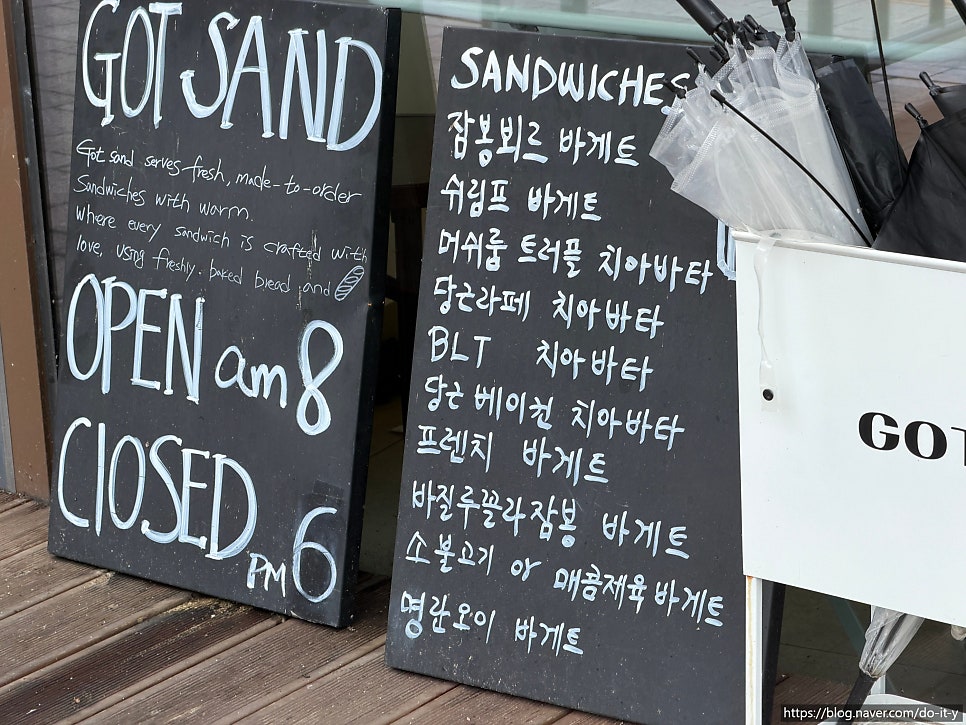 GOT SAND
Got sand serves fresh, made-to-order
Sandwiches with warm.
where every sandwich is crafted with
love, using freshly. baked bread and
OPEN am 8
ClOSED PM 6
SANDWICHES
잠봉뵈르 바게트
쉬림프 바게트
머쉬룸 트러플 치아바타
당근라페 치아바타
BLT 치아바타
당근 베이컨 치아바타
프렌치 바게트
바질루꼴라잠봉 바게트
소불고기 or 매콤제육 바게트
명란오이 바게트
GOT
https://blog.naver.com/do-it-y